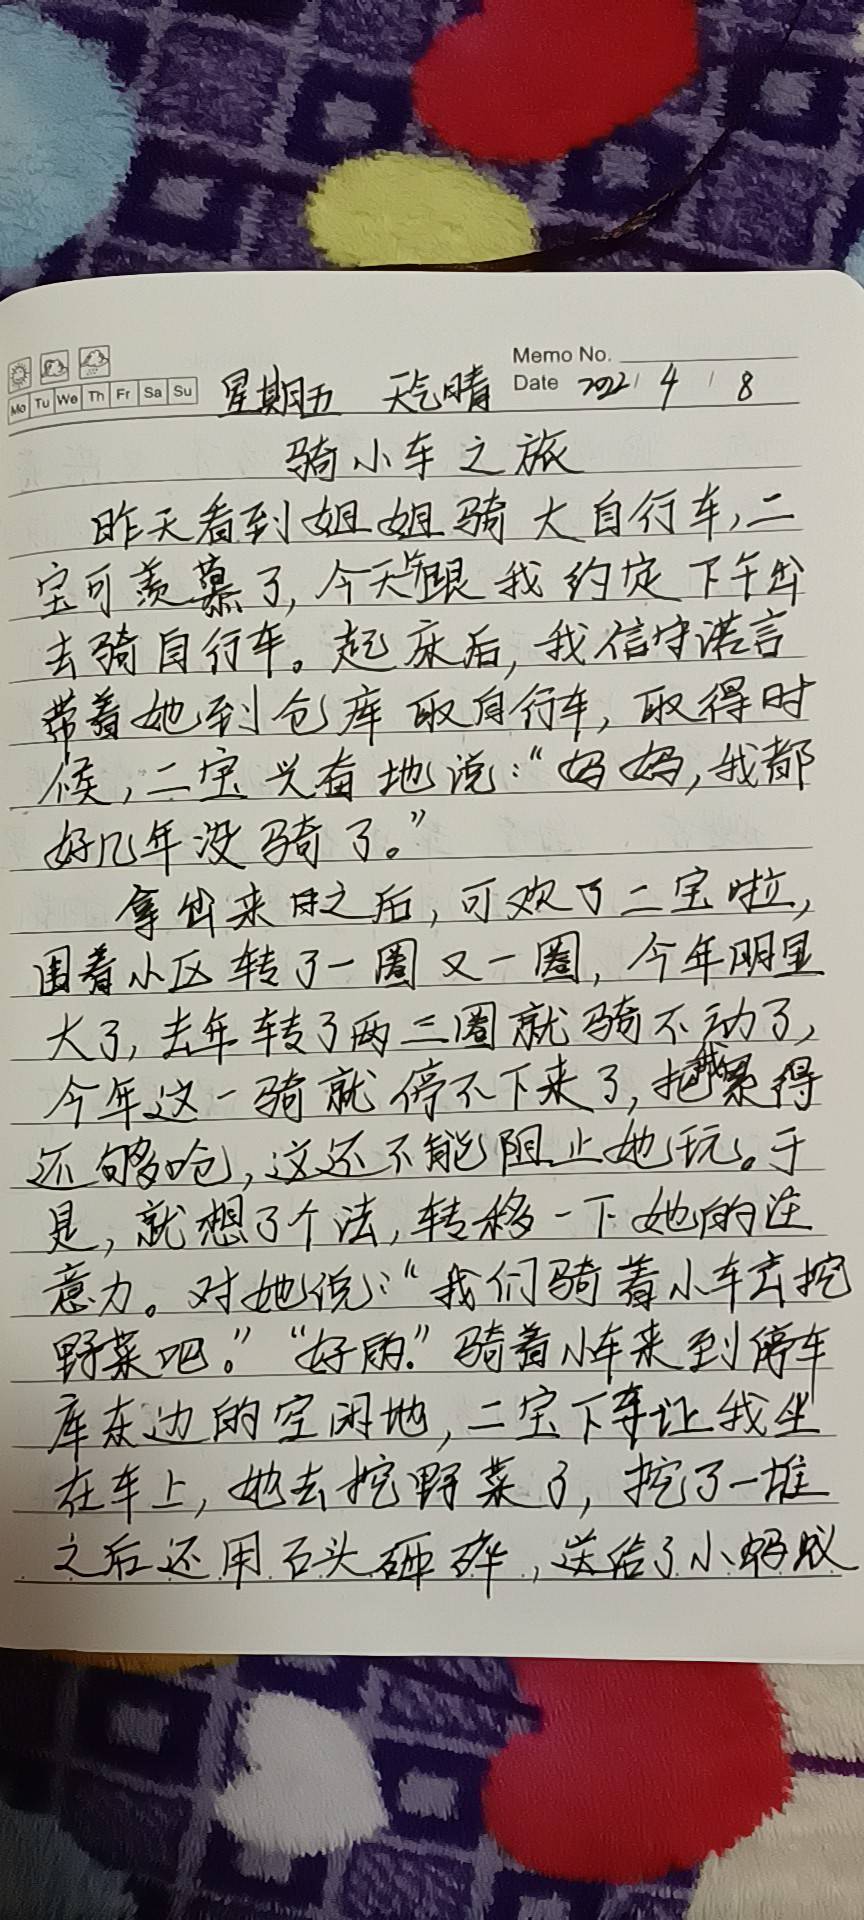 Memo No.
Mo Tu We Th Fr Sa Su 星期五 天气晴 Date 2022/4/8
骑小车之旅
昨天看到姐姐骑大自行车,二
宝可羡慕了,今天就跟我约定下午出
去骑自行车。起床后,我信守诺言
带着她到仓库取自行车,取得时
候,二宝兴奋地说:“妈妈,我都
好几年没骑了。”
拿出来之后,可欢了二宝啦,
围着小区转了一圈又一圈,今年明显
大了,去年转了两三圈就骑不动了,
今年这一骑就停不下来了,把我累得
还够呛,这还不能阻止她玩。于
是,就想了个法,转移一下她的注
意力。对她说:“我们骑着小车去挖
野菜吧。”“好的。”骑着小车来到停车
库东边的空闲地,二宝下车让我坐
在车上,她去挖野菜了,挖了一堆
之后还用石头砸碎,送给了小蚂蚁